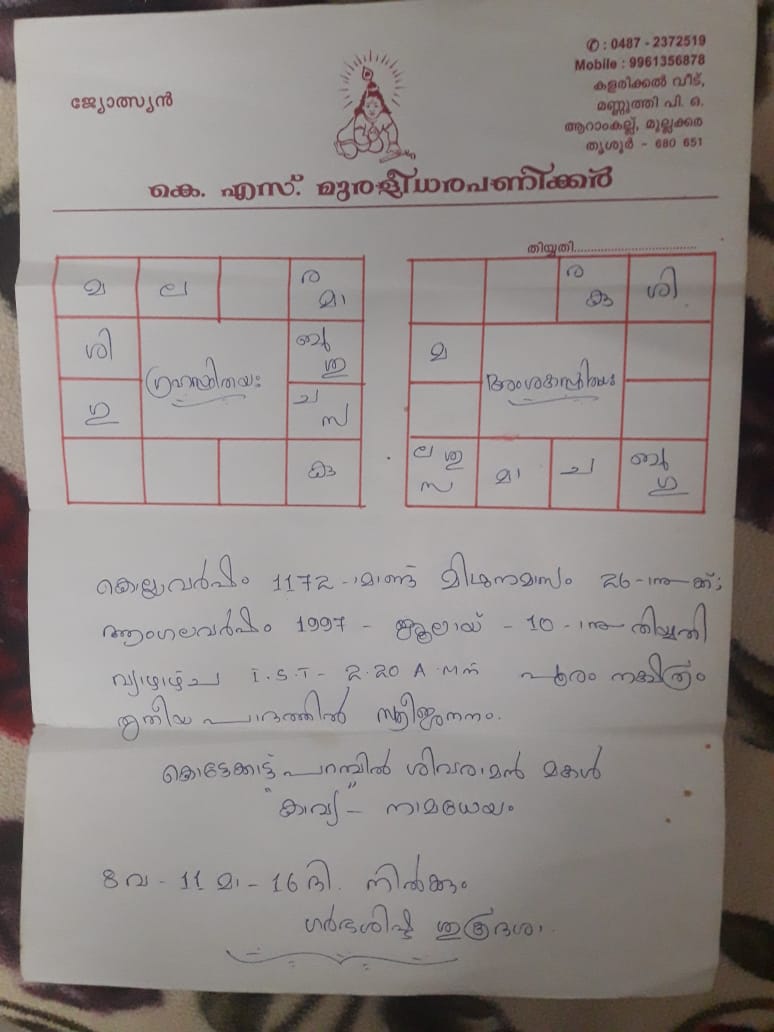 ✆ : 0487 - 2372519
Mobile : 9961356878
കളരിക്കൽ വീട്,
മണ്ണുത്തി പി. ഒ.
ആറാംകല്ല്, മുല്ലക്കര
തൃശൂർ - 680 651
ജ്യോത്സ്യൻ
കെ. എസ്. മുരളീധരപണിക്കർ
തിയ്യതി
മ ല ര മാ
ശി ബു ശു
ഗ്രഹസ്ഥിതയഃ
ഗു ച സ
കു
ര കു ശി
മ
അംശകസ്ഥിതയഃ
ല ശു സ മാ ച ബു ഗു
കൊല്ലവർഷം 1172-ാമാണ്ട് മിഥുനമാസം 26-ാംനക്ക്;
ആംഗലവർഷം 1997 - ജൂലായ് - 10-ാംന തിയ്യതി
വ്യാഴാഴ്ച I.S.T- 2.20 A.M ന് പൂരം നക്ഷത്രം
തൃതീയ പാദത്തിൽ സ്ത്രീജനനം.
കൊട്ടേക്കാട്ട് പറമ്പിൽ ശിവരാമൻ മകൾ
"കാവ്യ" - നാമധേയം
8 വ - 11 മാ - 16 ദി. നിൽക്കും
ഗർഭശിഷ്ട ശുക്രദശ.